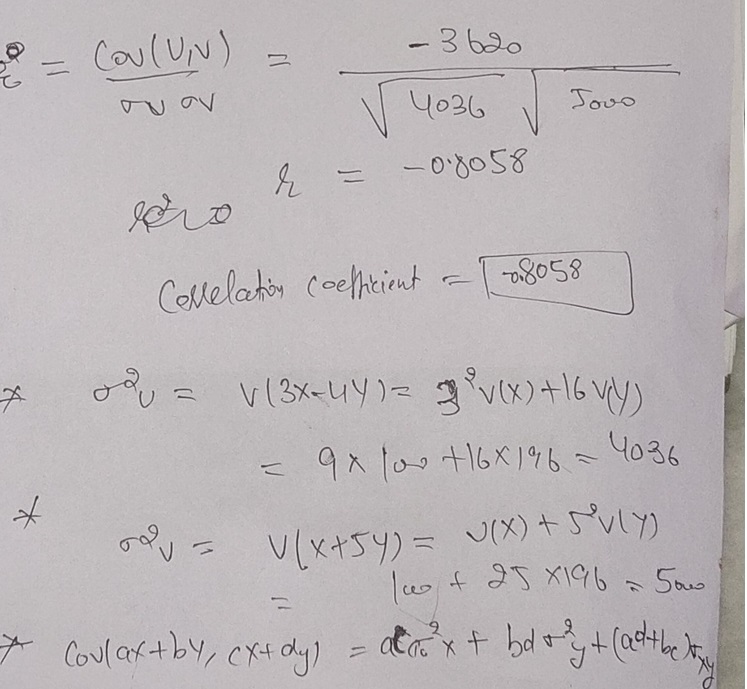 r = Cov(U,V) / σU σV = -3620 / √4036 √5000
r = -0.8058
Correlation coefficient = -0.8058
* σ²U = V(3X-4Y) = 3²V(X)+16V(Y)
= 9×100+16×196 = 4036
* σ²V = V(X+5Y) = V(X)+5²V(Y)
= 100 + 25×196 = 5000
* Cov(ax+by, cx+dy) = acσ²x + bdσ²y+(ad+bc)σxy